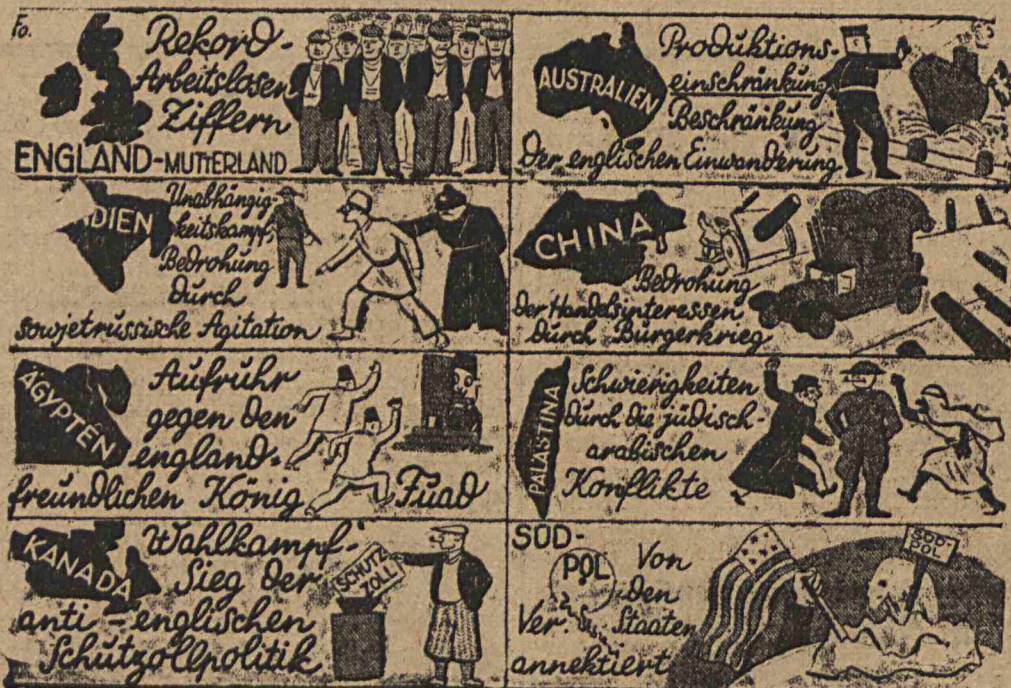 Fo.
Rekord-
Arbeitslosen
Ziffern
ENGLAND-MUTTERLAND
AUSTRALIEN
Produktions-
einschränkung
Beschränkung
der englischen Einwanderung
DIEN
Unabhängig-
keitskampf,
Bedrohung
durch
sowjetrussische Agitation
CHINA
Bedrohung
der Handelsinteressen
durch Bürgerkrieg
ÄGYPTEN
Aufruhr
gegen den
england-
freundlichen König Fuad
PALÄSTINA
Schwierigkeiten
durch die jüdisch-
arabischen
Konflikte
KANADA
Wahlkampf-
Sieg der
anti-englischen
Schutzzollpolitik
SCHUTZ
ZOLL
SÜD-
POL
Von
den
Ver. Staaten
annektiert
SÜD-
POL